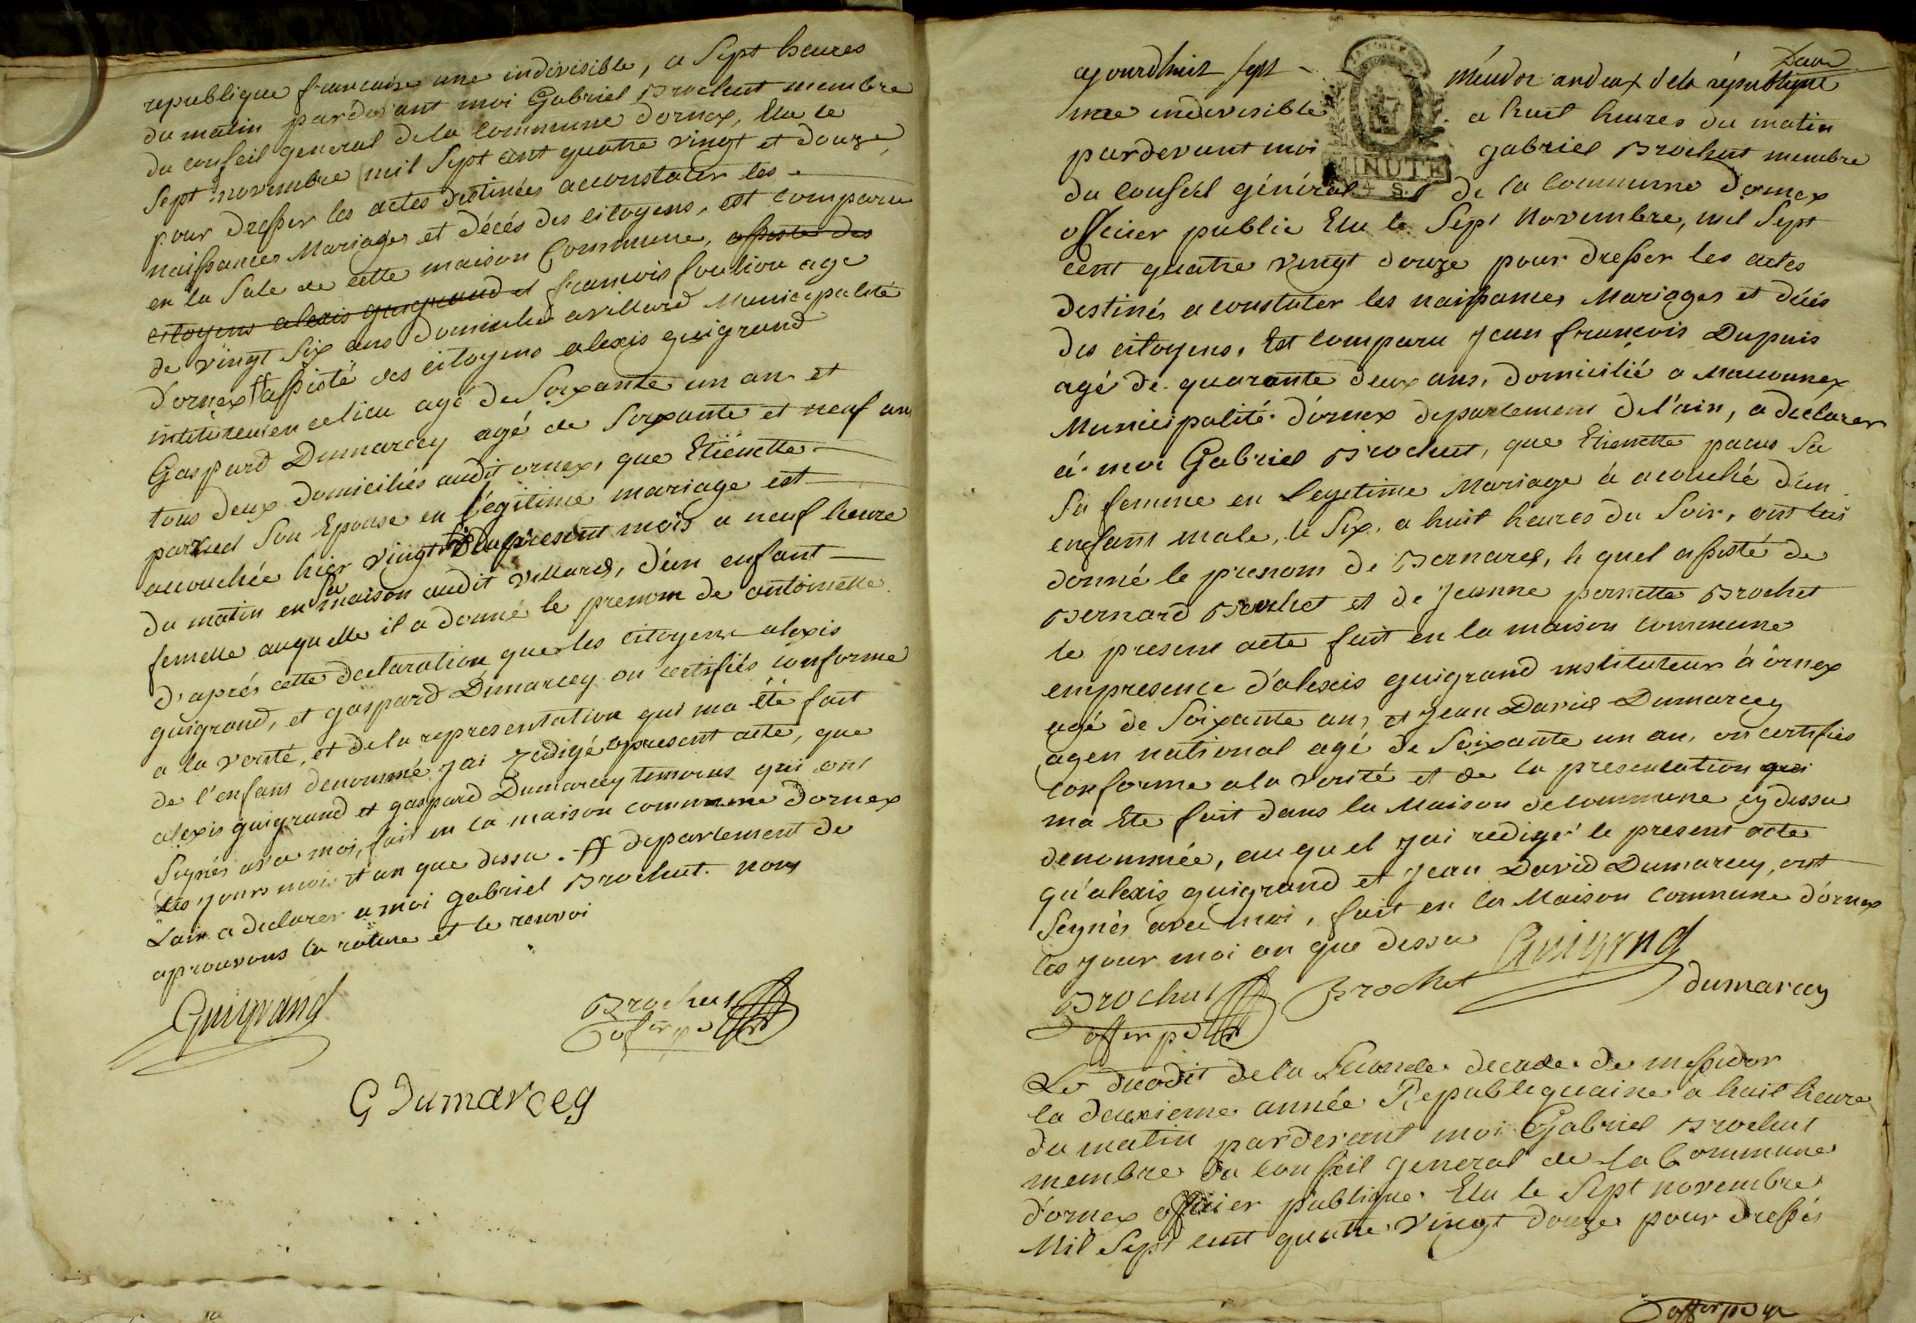 republique francaise une indivisible, a Sept heures
du matin pardevant moi Gabriel Brochut membre
du conseil general dela Commune dornex, Elu le
Sept novembre mil Sept cent quatre vingt et douze,
pour dresser les actes destinées aconstater les
naissances Mariages et décés des citoyens, est comparu
en la Sale de cette maison Commune, assisté des
citoyens alexis guigrand et francois foulion age
de vingt Six ans domicilié avillard Municipalité
d'ornex ff assisté des citoyens alexis guigrand
instituteur en ce lieu agé de Soixante un an et
Gaspard Dumarcey agé de Soixante et neuf ans
tous deux domiciliés audit ornex, que Etiennette
Son Epouse en légitime mariage est
accouchée hier vingt du present mois a neuf heure
du matin en Sa maison audit villard, d'un enfant
femelle auquelle il a donné le prenom de antoinette
d'aprés cette declaration que les citoyens alexis
guigrand, et gaspard Dumarcey on certifiés conforme
a la verité, et dela representation qui ma été fait
de l'enfant denommée, jai redigé le present acte, que
alexis guigrand et gaspard Dumarcey temoins qui ont
Signés avec moi, fait en la maison commune dornex
les jours mois et an que dessu. ff departement de
Lain a declarer a moi gabriel Brochut. nous
aprouvons la rature et le renvoi
Guigrand
Brochut
off er p
G Dumarcey
Deux
ajourdhuit sept méssidor an deux dela république
une indivisible a huit heures du matin
pardevant moi gabriel Brochut membre
MINUTE
du Conseil général de la Commune dornex
4 S.
officier public Elu le Sept Novembre, mil Sept
cent quatre vingt douze pour dresser les actes
destinés aconstater les naissances Mariages et décés
des citoyens, Est comparu jean françois Dupuis
agé de quarante deux ans, domicilié a Maconnex
Municipalité d'ornex departement de l'ain, a declarer
á moi Gabriel Brochut, que Etiennette pacus Sa
Sa femme en Legetime Mariage à acouché d'un
enfant male, le Six, a huit heures du Soir, ont lui
donné le prenom de Bernard, le quel assisté de
Bernard Brochet et de Jeanne pernette Brochet
le present acte fait en la maison commune
empresence d'alexis guigrand instituteur à ornex
agé de Soixante an, et Jean David Dumarcey
agen national agé de Soixante un an, on certifiés
conforme ala verité et de la presentation qui
ma Ete fait dans la Maison de commune cy dessu
denommée, auquel jai redigé le present acte
qu'alexis guigrand et Jean David Dumarcey, ont
Segnés avec moi, fait en la Maison commune d'ornex
les jour moi an que dessu
Guigrnd
Brochut
Brochet
dumarcey
offer p
Le duodit dela Seconde decade de messidor
la deuxieme année Republiquaine a huit heure
du matin pardevant moi Gabriel Brochut
membre du conseil general de la Commune
d'ornex officier publique Elu le Sept novembre
Mil Sept cent quatre vingt douze pour dressés